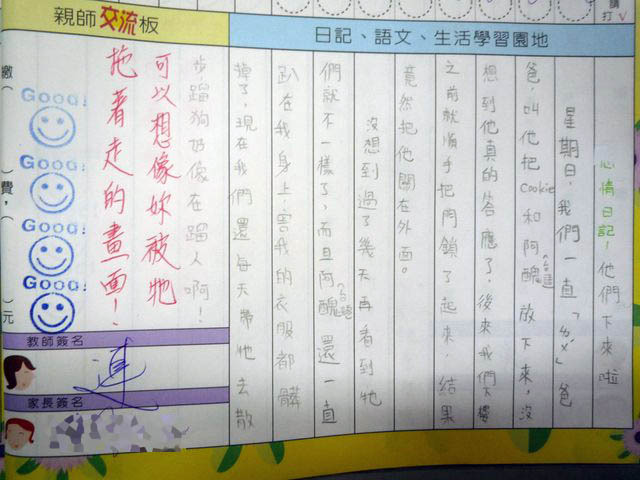 請
打ˇ
親師交流板
日記、語文、生活學習園地
心情日記!他們下來啦
星期日,我們一直「ㄌㄨˊ」爸
爸,叫他把cookie和阿醜(台語)放下來,沒
想到他真的答應了,後來我們下樓
之前就順手把門鎖了起來,結果
竟然把他關在外面。
沒想到過了幾天再看到牠
們就不一樣了,而且阿醜(台語)還一直
趴在我身上,害我的衣服都髒
掉了,現在我們還每天帶牠去散
步蹓狗好像在蹓人啊!
可以想像妳被牠
拖著走的畫面!
繳(
)費,(
)元
Good!
Good!
Good!
Good!
教師簽名
連
家長簽名